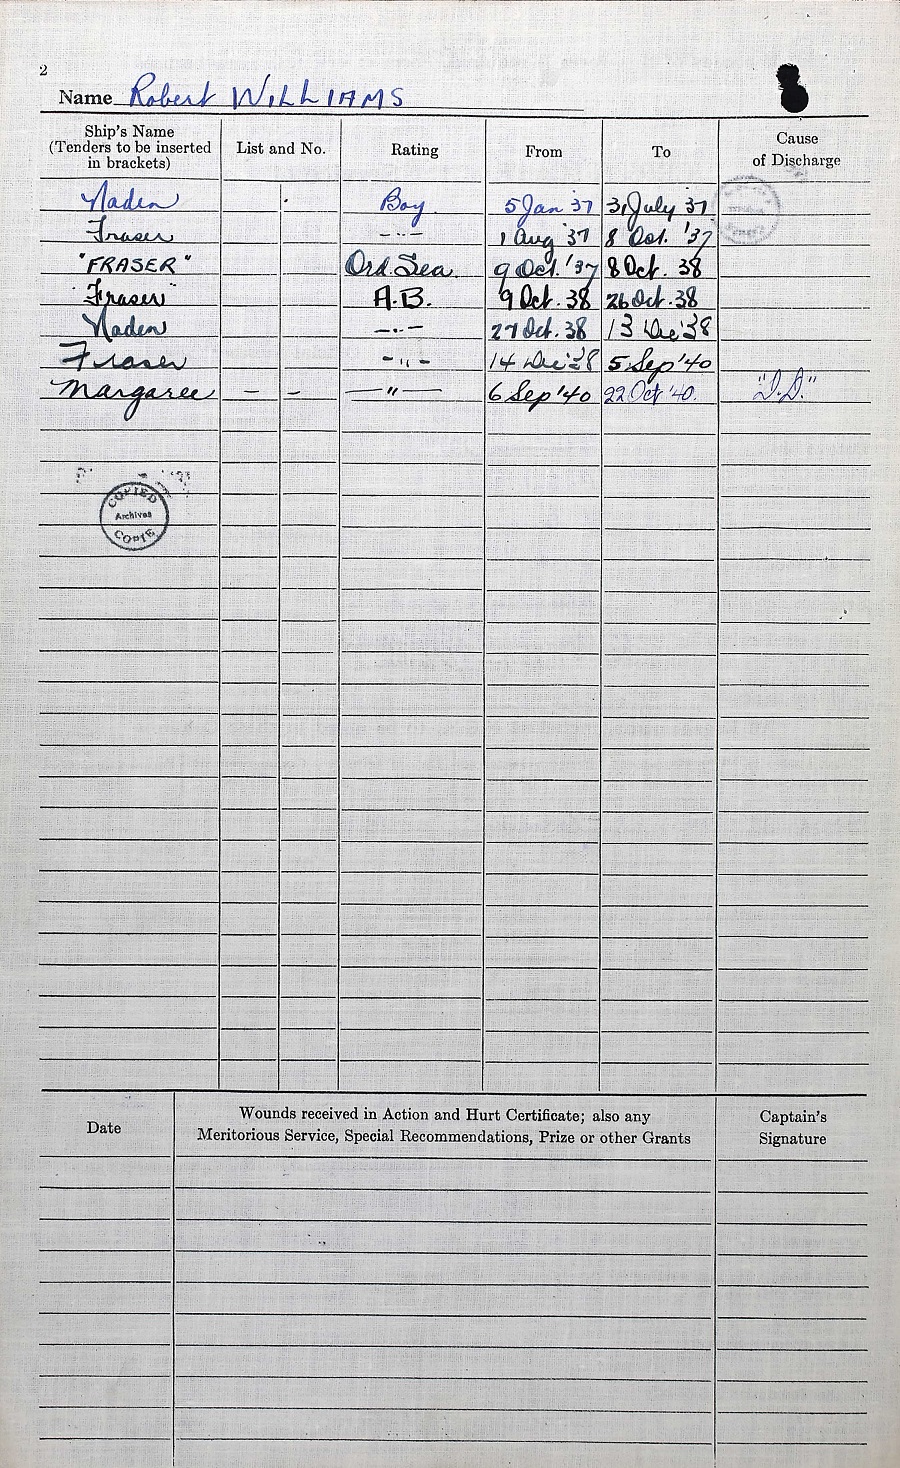 2
Name Robert WILLIAMS
Ship's Name
(Tenders to be inserted
in brackets)
List and No.
Rating
From
To
Cause
of Discharge
Naden Boy 5 Jan 37 31 July 37
Fraser –"– 1 Aug '37 8 Oct. '37
"FRASER" Ord. Sea. 9 Oct. '37 8 Oct. 38
"Fraser" A.B. 9 Oct. 38 26 Oct. 38
Naden –"– 27 Oct. 38 13 Dec '38
Fraser –"– 14 Dec '38 5 Sep '40
Margaree – – –"– 6 Sep '40 22 Oct '40. "D.D."
COPIED
Archives
COPIE
Date
Wounds received in Action and Hurt Certificate; also any
Meritorious Service, Special Recommendations, Prize or other Grants
Captain's
Signature